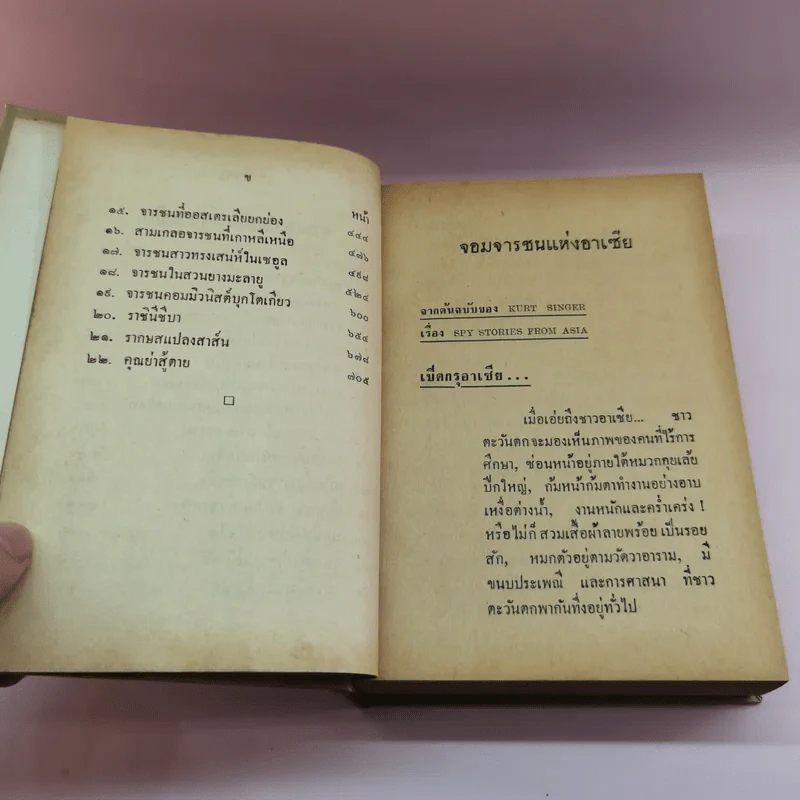 ข
หน้า
๑๕. จารชนที่ออสเตรเลียยกย่อง ๔๔๔
๑๖. สามเกลอจารชนที่เกาหลีเหนือ ๔๗๖
๑๗. จารชนสาวทรงเสน่ห์ในเซอูล ๔๙๘
๑๘. จารชนในสวนยางมะลายู ๕๒๔
๑๙. จารชนคอมมิวนิสต์บุกโตเกียว ๖๐๐
๒๐. ราชินีชีบา ๖๕๔
๒๑. รากษสแปลงสาส์น ๖๗๘
๒๒. คุณย่าสู้ตาย ๗๐๕
จอมจารชนแห่งอาเซีย
จากต้นฉบับของ KURT SINGER
เรื่อง SPY STORIES FROM ASIA
เปิดกรุอาเซีย...
เมื่อเอ่ยถึงชาวอาเซีย... ชาว
ตะวันตกจะมองเห็นภาพของคนที่ไร้การ
ศึกษา, ซ่อนหน้าอยู่ภายใต้หมวกกุยเล้ย
ปีกใหญ่, ก้มหน้าก้มตาทำงานอย่างอาบ
เหงื่อต่างน้ำ, งานหนักและคร่ำเคร่ง !
หรือไม่ก็ สวมเสื้อผ้าลายพร้อย เป็นรอย
สัก, หมกตัวอยู่ตามวัดวาอาราม, มี
ขนบประเพณี และการศาสนา ที่ชาว
ตะวันตกพากันทึ่งอยู่ทั่วไป